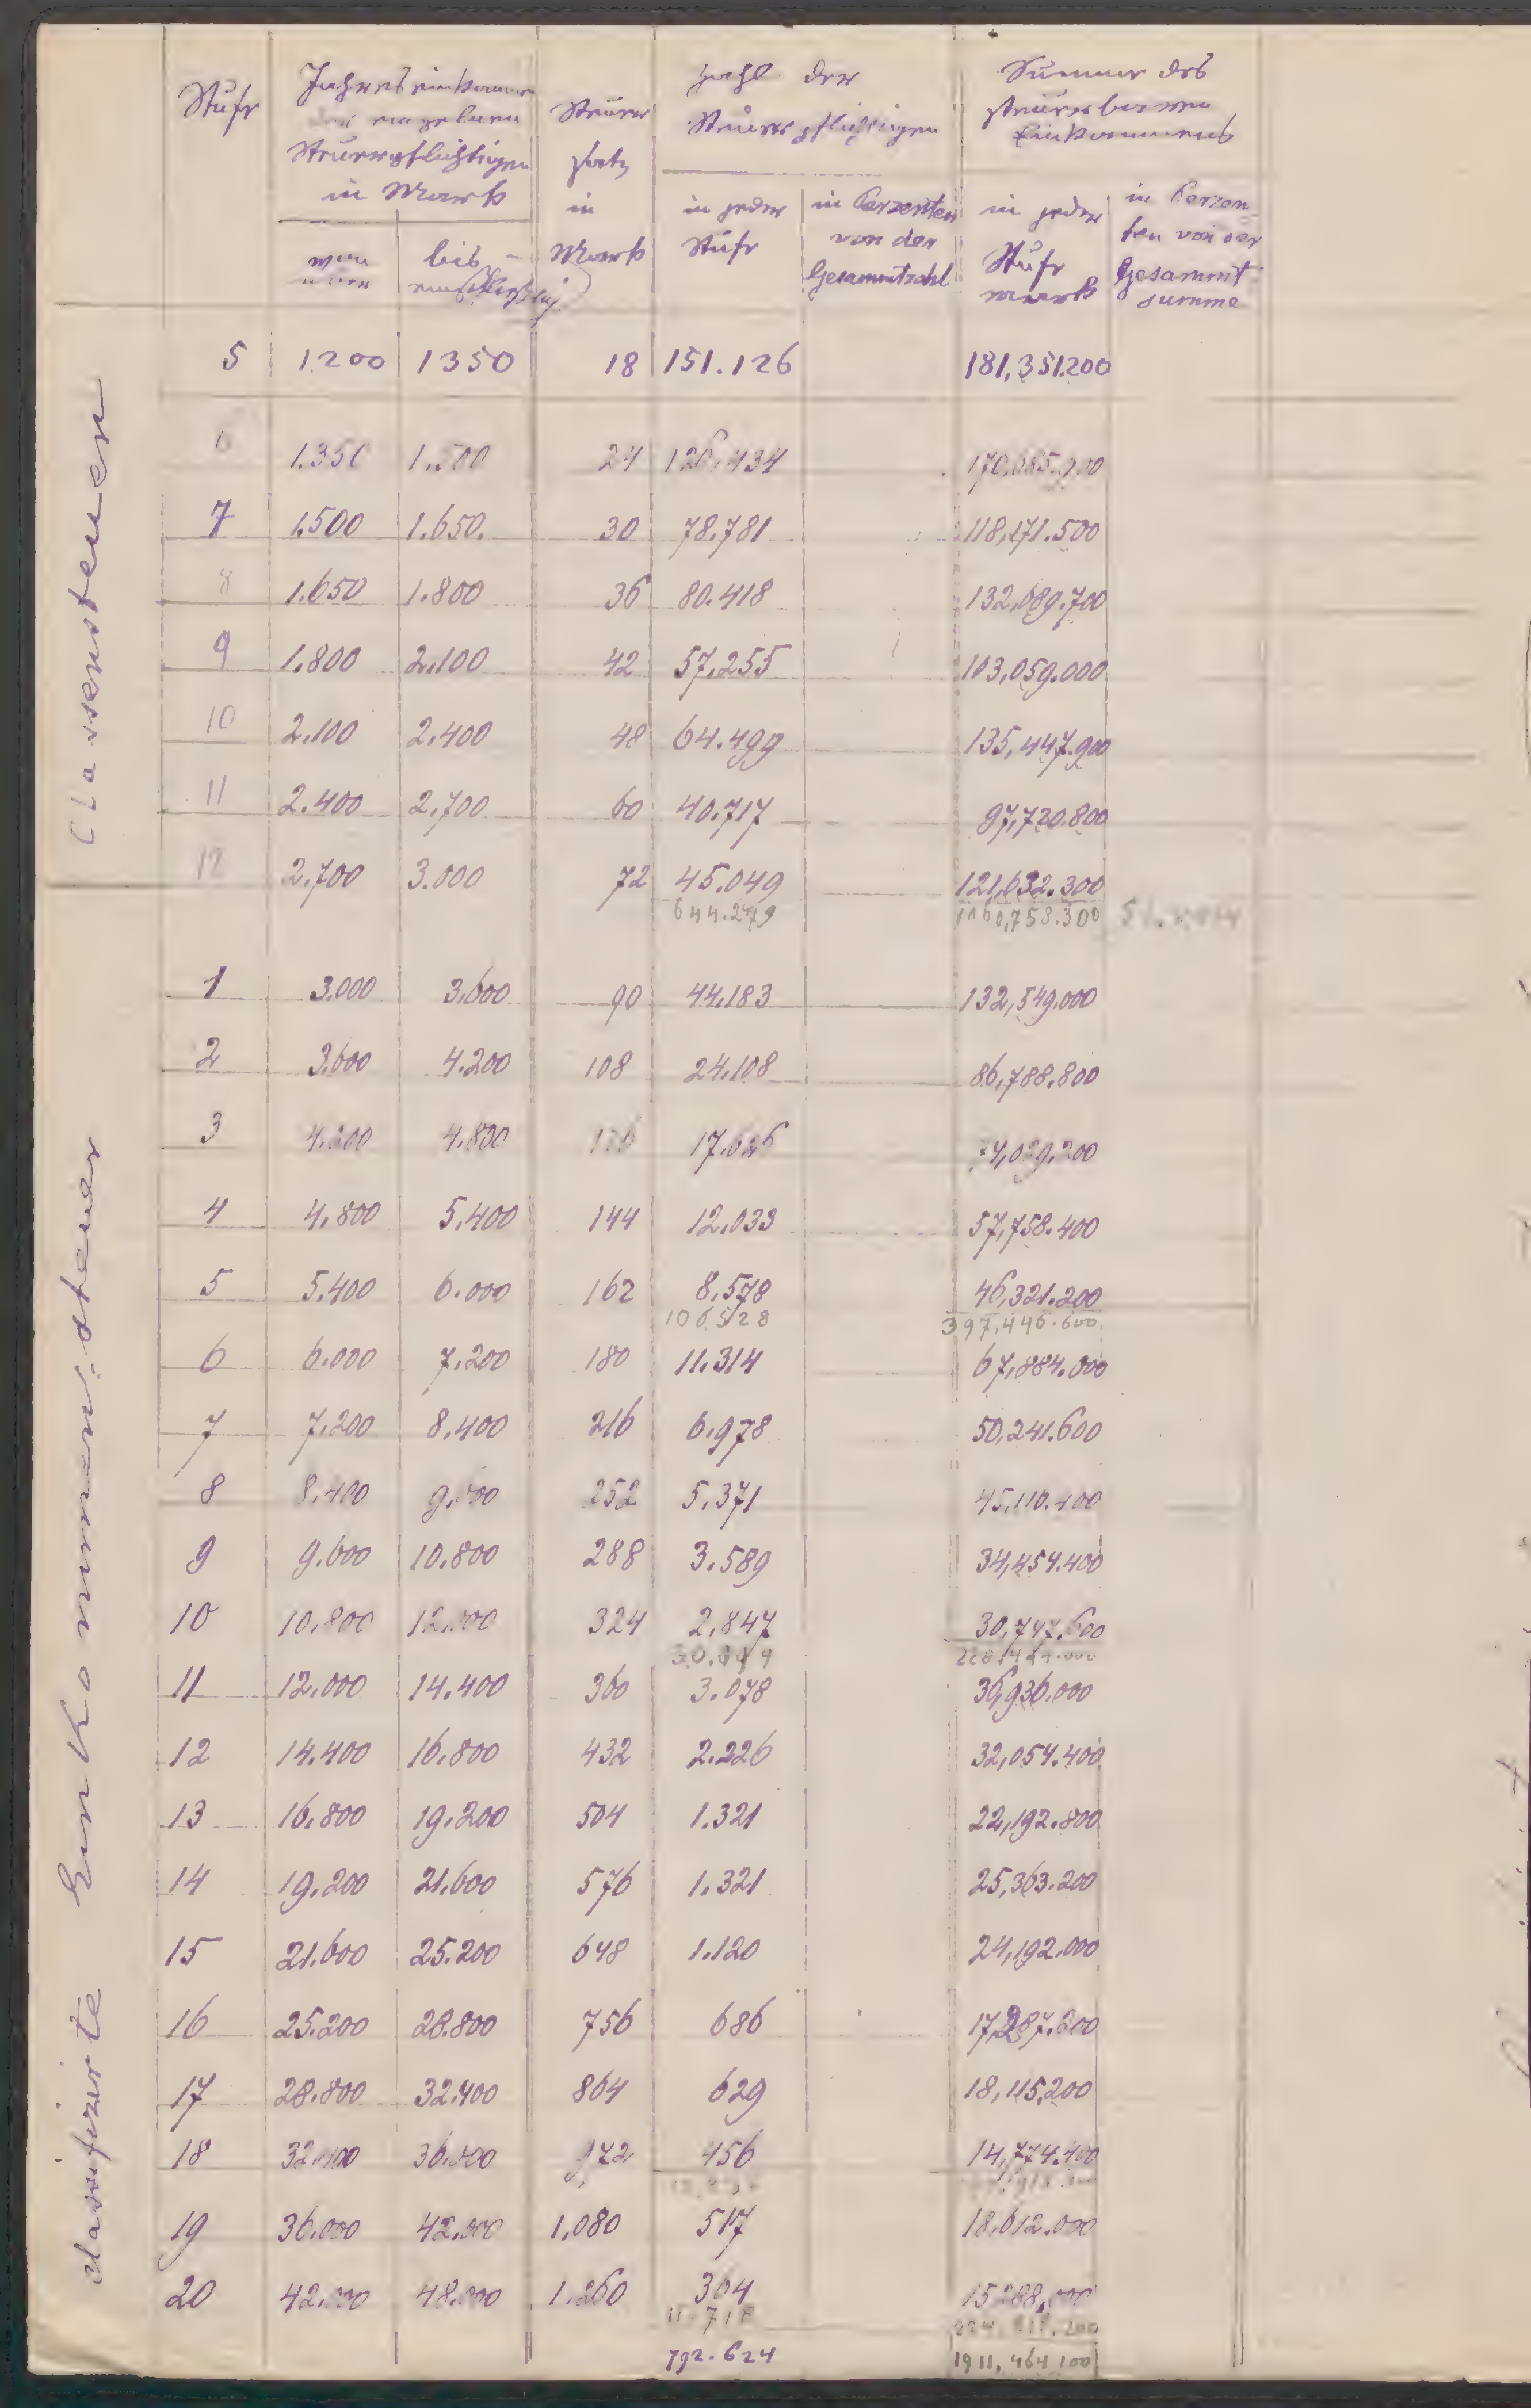 Stufe
Jahreseinkommen
der einzelnen
Steuerpflichtigen
in Mark
von
über
bis
einschließlich
Steuer
satz
in
Mark
Zahl der
Steuerpflichtigen
in jeder
Stufe
in Perzenten
von der
Gesammtzahl
Summe des
steuerbaren
Einkommens
in jeder
Stufe
Mark
in Perzen
ten von der
Gesammt
summe
Classensteuer
5 1200 1350 18 151.126 181,351.200
6 1.350 1.500 24 126.434
7 1.500 1.650. 30 78.781 118,171.500
8 1.650 1.800 36 80.418 132,689.700
9 1.800 2.100 42 57.255 103,059.000
10 2.100 2.400 48 64.499 135,447.900
11 2.400 2.700 60 40.717 97,720.800
12 2.700 3.000 72 45.049 121,632.300
644.279 1060,758.300
classifizirte Einkommens-steuer
1 3.000 3.600 90 44.183 132,549.000
2 3.600 4.200 108 24.108 86,788.800
3 4.200 4.800 126 17.626 74,029.200
4 4.800 5.400 144 12.033 57,758.400
5 5.400 6.000 162 8.578 46,321.200
106.528 397,446.600
6 6.000 7.200 180 11.314 67,884.000
7 7.200 8.400 216 6.978 50,241.600
8 8.400 9.600 252 5.371 45,116.400
9 9.600 10.800 288 3.589 34,454.400
10 10.800 12.000 324 2.847 30,747.600
11 12.000 14.400 360 3.078 36,936.000
12 14.400 16.800 432 2.226 32,054.400
13 16.800 19.200 504 1.321 22,192.800
14 19.200 21.600 576 1.321 25,363.200
15 21.600 25.200 648 1.120 24,192.000
16 25.200 28.800 756 686 17,287.200
17 28.800 32.400 864 629 18,115,200
18 32.400 36.000 972 456 14,774.400
19 36.000 42.000 1.080 517 18,612.000
20 42.000 48.000 1.260 364 15288,000
11.718
792.624 1911,464 100